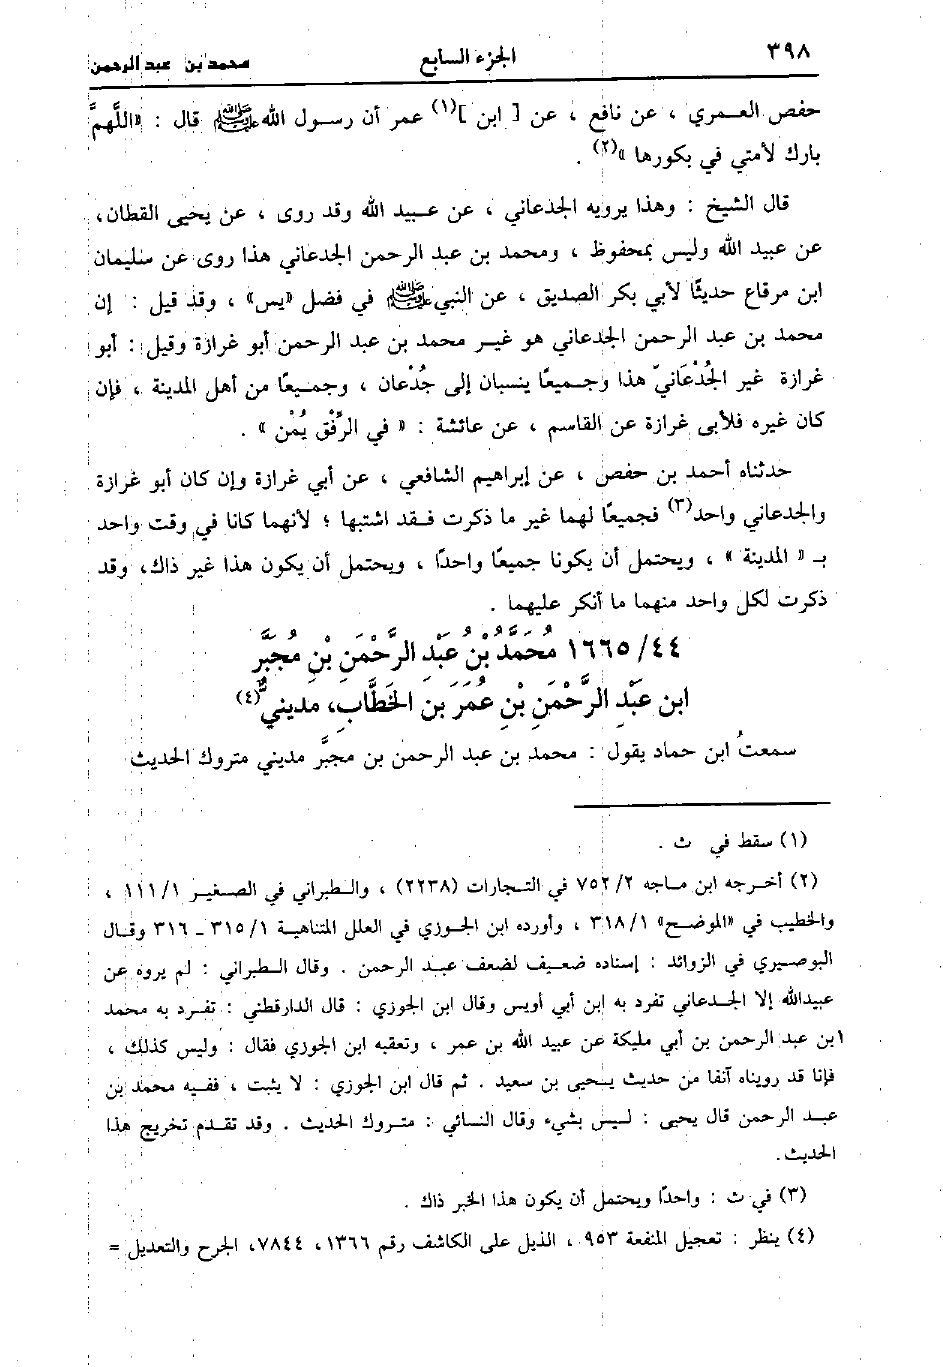 ٣٩٨ الجزء السابع محمد بن عبد الرحمن
حفص العمري ، عن نافع ، عن [ ابن ](١) عمر أن رسول الله ﷺ قال : «اللَّهمَّ
بارك لأمتي في بكورها »(٢) .
قال الشيخ : وهذا يرويه الجدعاني ، عن عبيد الله وقد روى ، عن يحيى القطان،
عن عبيد الله وليس بمحفوظ ، ومحمد بن عبد الرحمن الجدعاني هذا روى عن سليمان
ابن مرقاع حديثًا لأبي بكر الصديق ، عن النبي ﷺ في فضل «يس» ، وقد قيل : إن
محمد بن عبد الرحمن الجدعاني هو غير محمد بن عبد الرحمن أبو غرازة وقيل : أبو
غرازة غير الجُدْعَانيّ هذا وجميعًا ينسبان إلى جُدْعان ، وجميعًا من أهل المدينة ، فإن
كان غيره فلأبى غرازة عن القاسم ، عن عائشة : « في الرِّفْق يُمْن » .
حدثناه أحمد بن حفص ، عن إبراهيم الشافعي ، عن أبي غرازة وإن كان أبو غرازة
والجدعاني واحد(٣) فجميعًا لهما غير ما ذكرت فقد اشتبها ؛ لأنهما كانا في وقت واحد
بـ « المدينة » ، ويحتمل أن يكونا جميعًا واحدًا ، ويحتمل أن يكون هذا غير ذاك، وقد
ذكرت لكل واحد منهما ما أنكر عليهما .
١٦٦٥/٤٤ مُحَمَّدُ بْنُ عَبْدِ الرَّحْمَنِ بْنِ مُجَبَّرِ
ابن عَبْدِ الرَّحْمَنِ بْنِ عُمَرَ بن الخَطَّابِ، مدينيٌّ(٤)
سمعتُ ابن حماد يقول : محمد بن عبد الرحمن بن مجبَّر مديني متروك الحديث
(١) سقط في ث .
(٢) أخرجه ابن ماجه ٧٥٢/٢ في التجارات (٢٢٣٨) ، والطبراني في الصغير ١١١/١ ،
والخطيب في «الموضح» ٣١٨/١ ، وأورده ابن الجوزي في العلل المتناهية ٣١٥/١ ـ ٣١٦ وقال
البوصيري في الزوائد : إسناده ضعيف لضعف عبد الرحمن . وقال الطبراني : لم يروه عن
عبيدالله إلا الجدعاني تفرد به ابن أبي أويس وقال ابن الجوزي : قال الدارقطني : تفرد به محمد
ابن عبد الرحمن بن أبي مليكة عن عبيد الله بن عمر ، وتعقبه ابن الجوزي فقال : وليس كذلك ،
فإنا قد رويناه آنفا من حديث يحيى بن سعيد . ثم قال ابن الجوزي : لا يثبت ، ففيه محمد بن
عبد الرحمن قال يحيى : ليس بشيء وقال النسائي : متروك الحديث . وقد تقدم تخريج هذا
الحديث.
(٣) في ث : واحدًا ويحتمل أن يكون هذا الخبر ذاك .
(٤) ينظر : تعجيل المنفعة ٩٥٣ ، الذيل على الكاشف رقم ١٣٦٦ ، ٧٨٤٤، الجرح والتعديل =